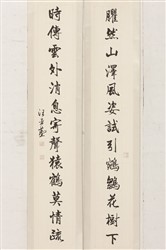 臞然山澤風姿試引鵷鶵花樹下
時傳雲外消息寧聲猿鶴莫情疏